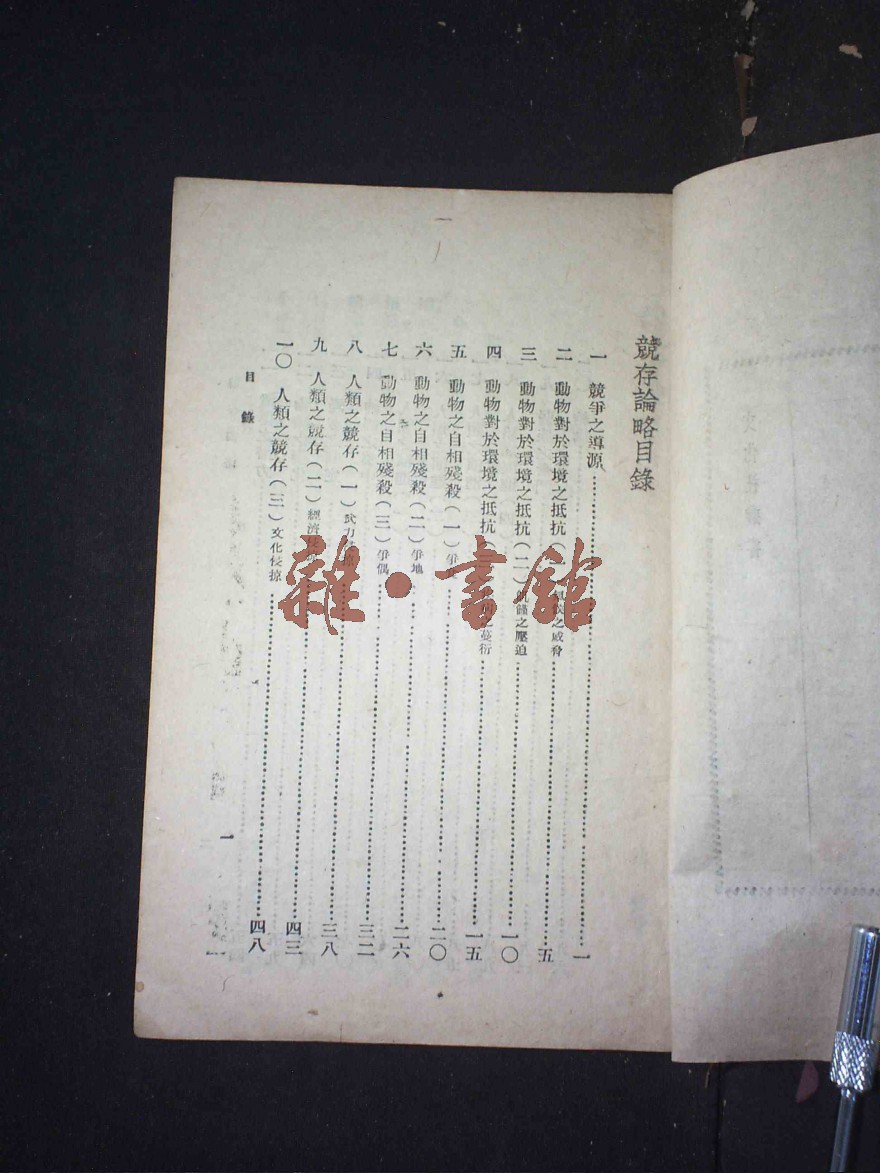 競存論略目錄
一 競爭之導源 一
二 動物對於環境之抵抗(一) 之威脅 五
三 動物對於環境之抵抗(二) 饉之壓迫 一〇
四 動物對於環境之抵抗 之蔓衍 一五
五 動物之自相殘殺(一) 爭 二〇
六 動物之自相殘殺(二) 爭地 二六
七 動物之自相殘殺(三) 爭偶 三二
八 人類之競存(一) 武力 掠 三八
九 人類之競存(二) 經濟侵 四三
一〇 人類之競存(三) 文化侵掠 四八
目錄
一
雜·書館